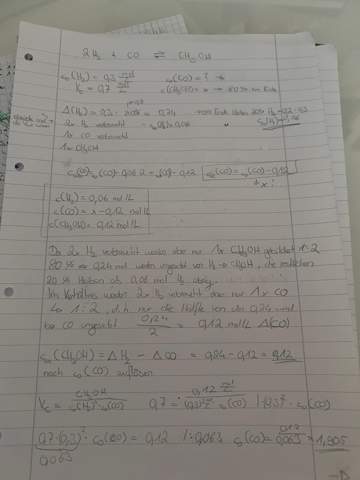 2H₂ + CO ⇌ CH₃OH
c₀(H₂) = 0,3 mol/L c₀(CO) = ?
Kc = 0,7 c(CH₃OH) = x → 80% am Ende
Δ(H₂) = 0,3 · 80% = 0,24
2x H₂ verbraucht
1x CO verbraucht
1x CH₃OH
c₀(CO) = c₀(CO) - 0,12
c(H₂) = 0,06 mol/L
c(CO) = x - 0,12 mol/L
c(CH₃OH) = 0,12 mol/L
Da 2x H₂ verbraucht werden aber nur 1x CH₃OH gebildet 1:2
80% = 0,24 mol werden umgesetzt von H₂ → CH₃OH, die restlichen
20% bleiben als 0,06 mol H₂ übrig.
Im Verhältnis werden 2x H₂ verbraucht aber nur 1x CO
↳ 1:2, d.h. nur die Hälfte von den 0,24 wird
bei CO umgesetzt 0,24/2 = 0,12 mol/L Δ(CO)
c₀(CH₃OH) = ΔH₂ - ΔCO = 0,24 - 0,12 = 0,12
nach c₀(CO) auflösen
Kc = CH₃OH / c₀(H₂)² · c₀(CO) 0,7 = 0,12 / (0,3)² · c₀(CO) | · 0,3² · c₀(CO)
0,7 · (0,3)² · c₀(CO) = 0,12 | : 0,063 c₀(CO) = 0,12 / 0,063 = 1,905
0,063